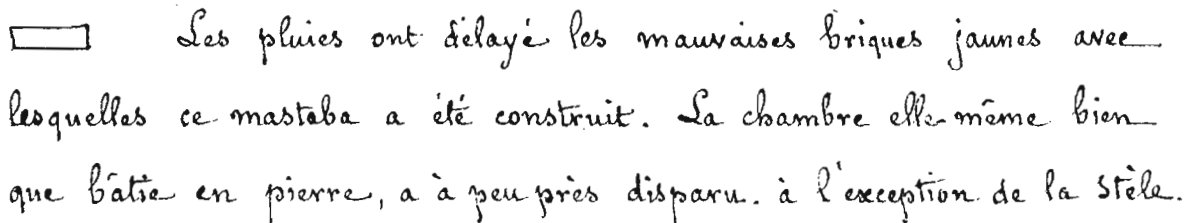 Les pluies ont délayé les mauvaises briques jaunes avec
lesquelles ce mastaba a été construit. La chambre elle-même bien
que bâtie en pierre, a à peu près disparu. à l'exception de la Stèle.